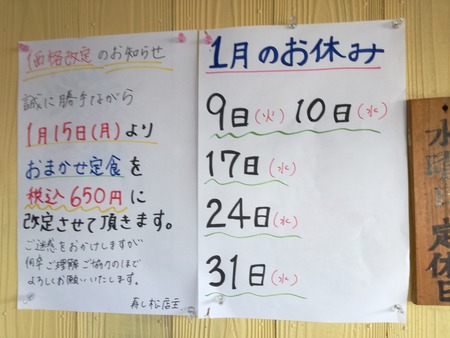 価格改定のお知らせ
誠に勝手ながら
1月15日(月)より
おまかせ定食を
税込650円に
改定させて頂きます。
ご迷惑をおかけしますが
何卒ご理解ご協力のほど
よろしくお願いいたします。
寿し松店主
1月のお休み
9日(火) 10日(水)
17日(水)
24日(水)
31日(水)
水曜
定休日